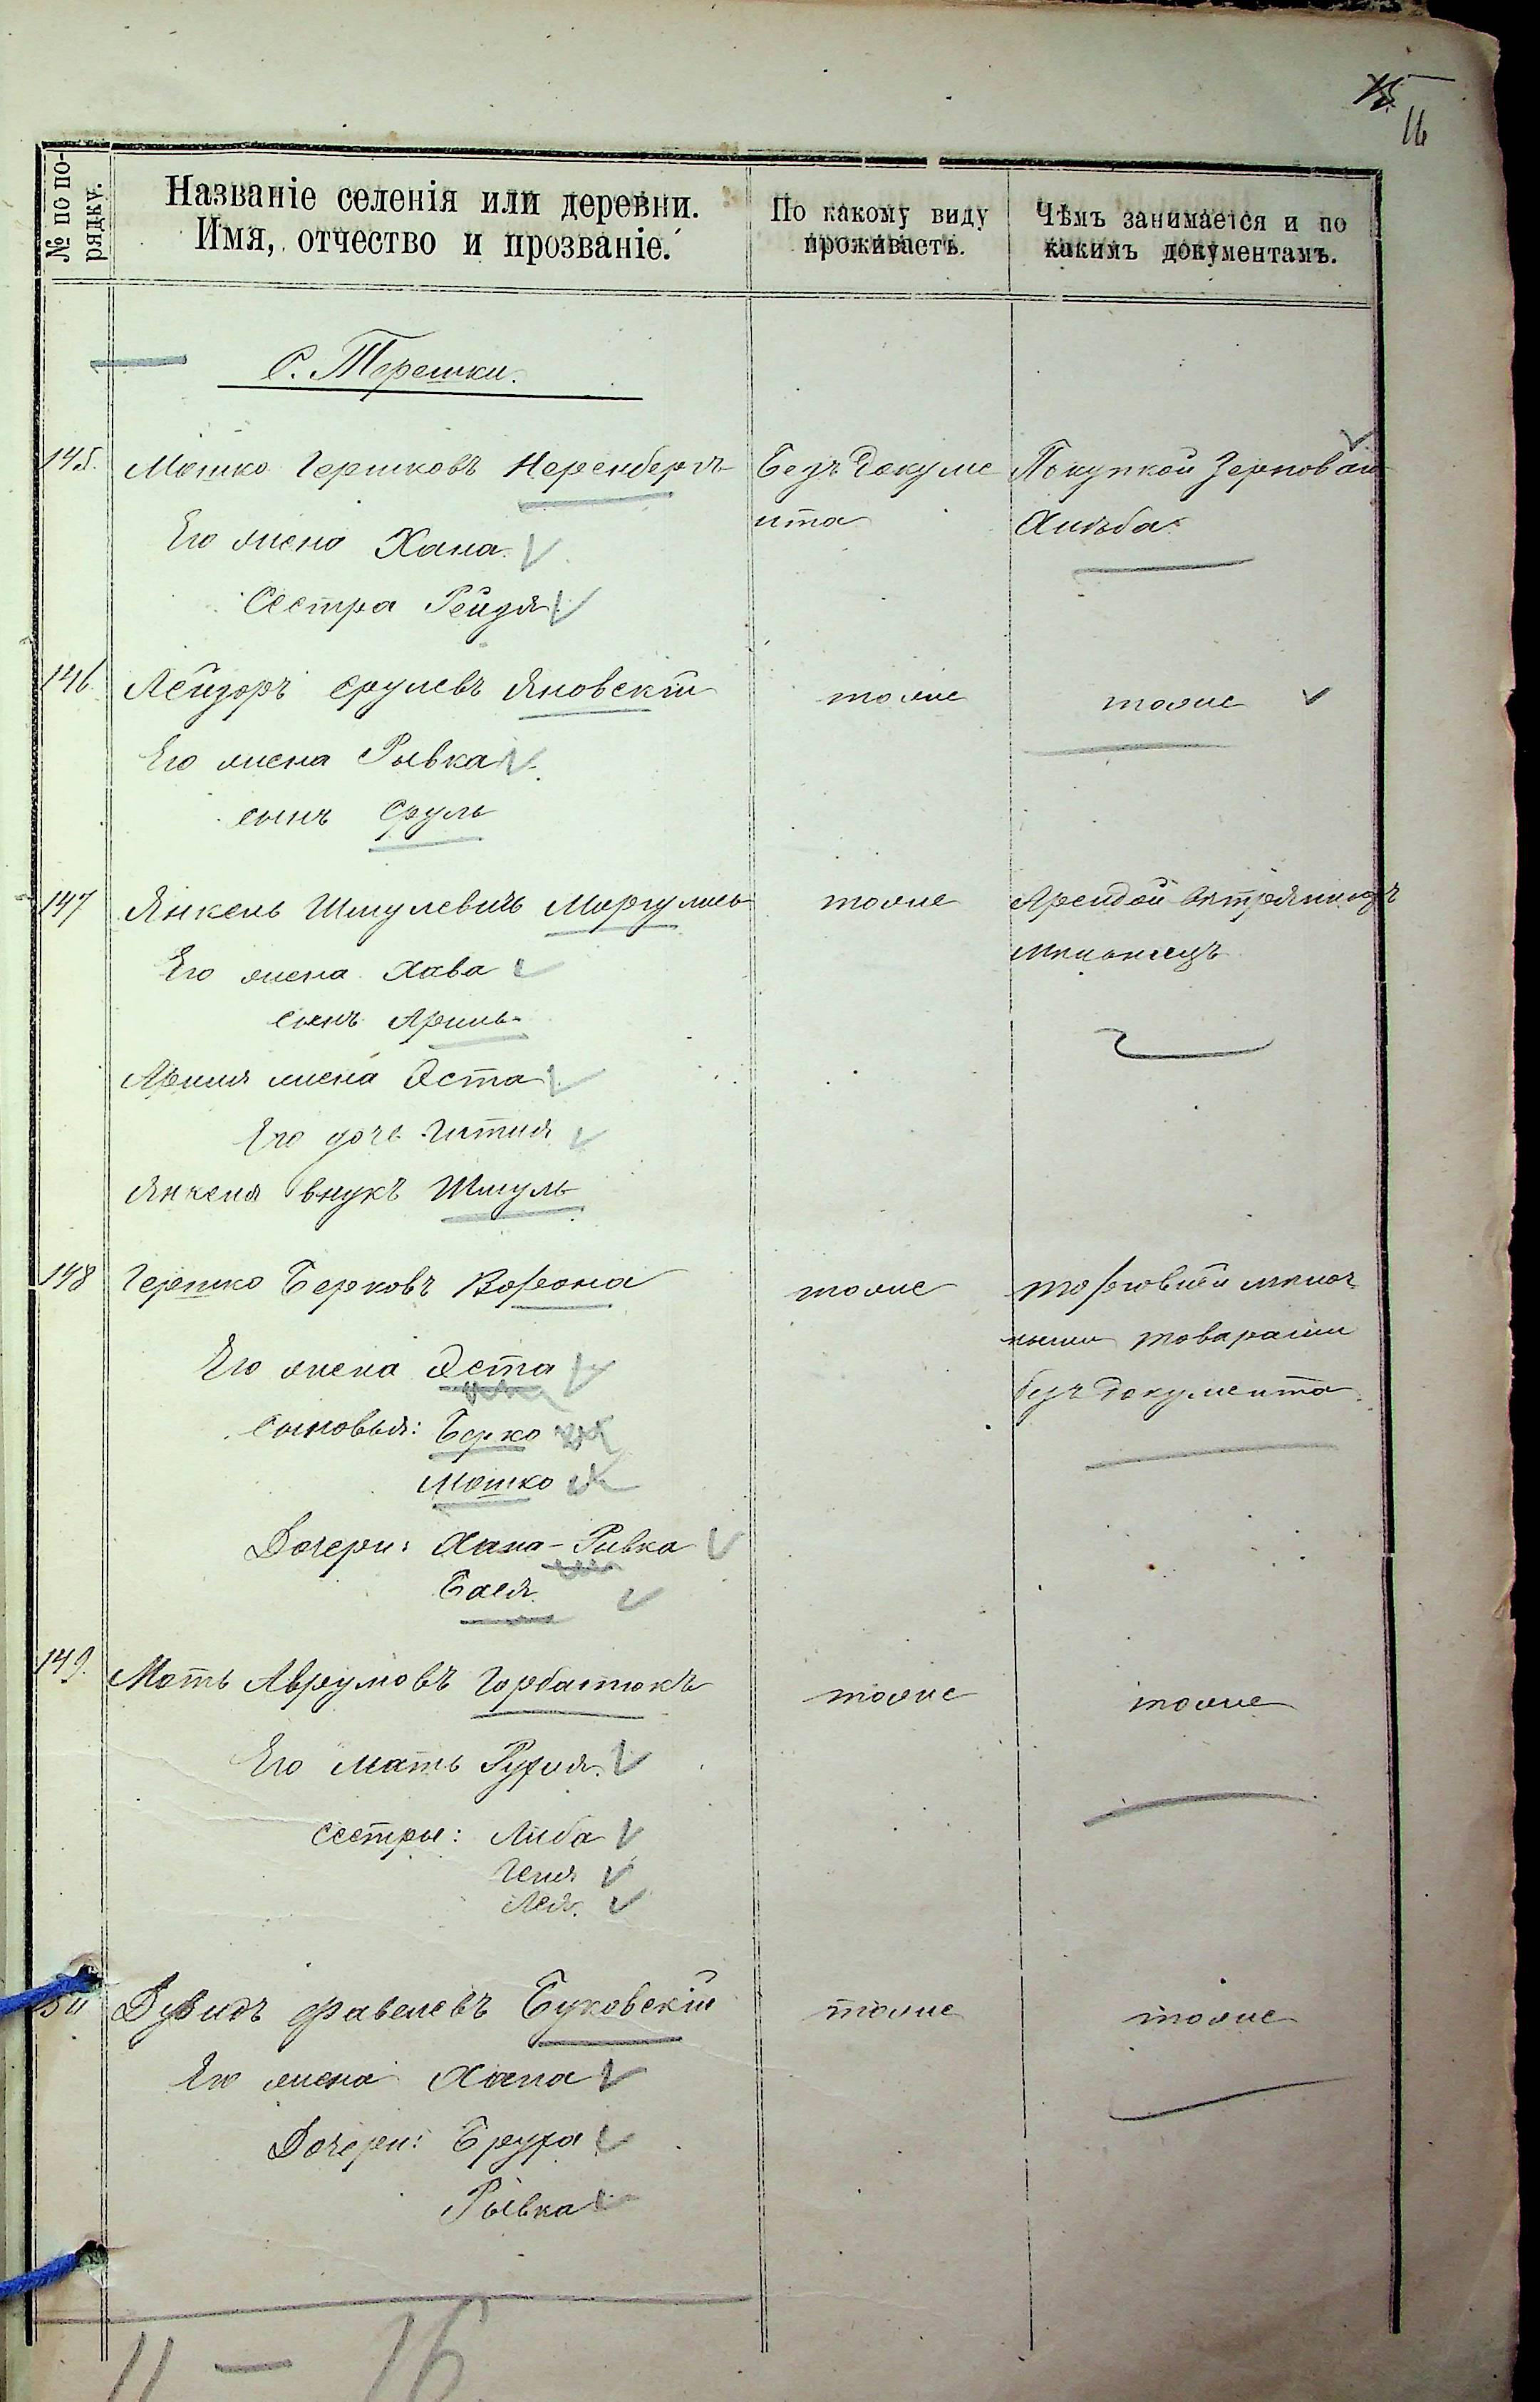 15
16
№ по порядку.
Названіе селенія или деревни.
Имя, отчество и прозваніе.
По какому виду
проживаетъ.
Чѣмъ занимается и по
какимъ документамъ.
С. Терешки.
145. Мошко Гершковъ Неренбергъ Безъ докуме Покупкой зерновой
нта Хлѣба
Его жена Хана
Сестра Рейзя
146. Лейзоръ Срулевъ Яновскій тоже тоже
Его жена Рывка
сынъ Сруль
147 Янкель Шмулевичъ Маргулисъ тоже Арендой
мельницъ
Его жена Хава
сынъ Аринь
Ариня жена Эста
Его дочь Гитля
Янкеля внукъ Шмуль
148 Гершко Берковъ Ворона тоже торговлей мелоч
ными товарами
Его жена Эста
безъ документа.
сыновья: Берко
Мошко
Дочери: Хана-Ривка
Бася.
149. Моть Аврумовъ Горбатюкъ тоже тоже
Его мать Рухля.
сестры: Либа
Геня
Лея.
Дувидъ Файвелевъ Буковскій тоже тоже
Его жена Хана
Дочери: Бруха
Рывка
11 — 16